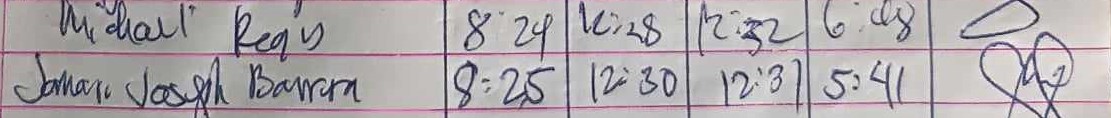 Michael Regis 8:24 12:28 12:32 6:08
Joseph Barrera 8:25 12:30 12:31 5:41